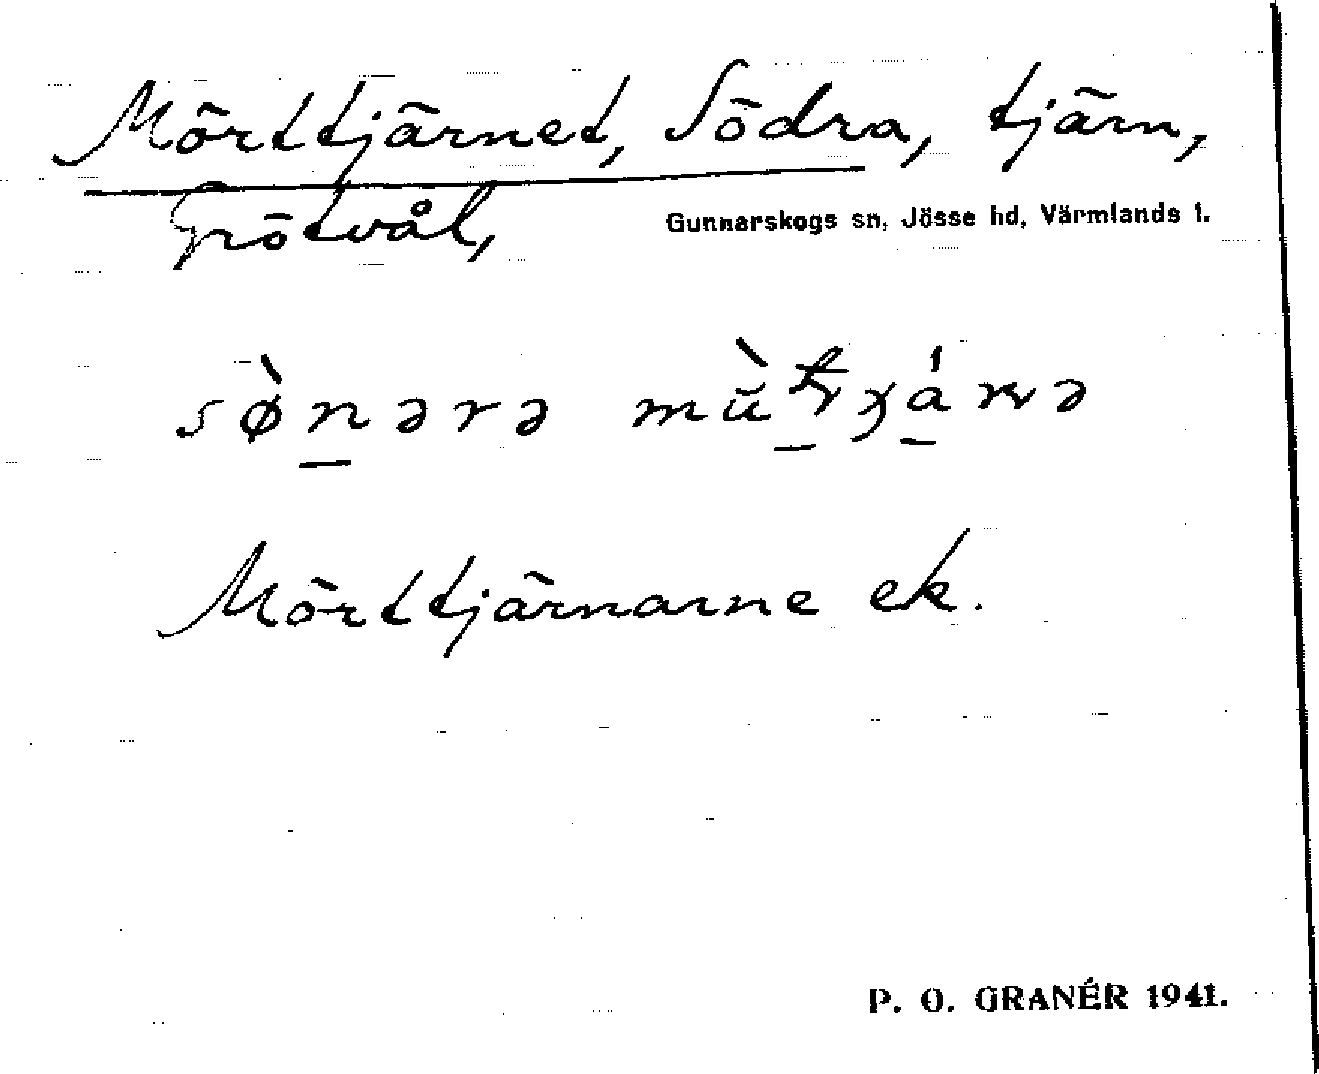 Mörttjärnet, Södra, tjärn,
Grötvål, Gunnarskogs sn, Jösse hd, Värmlands l.
sø̀nərə
Mörttjärnarne ek.
P. O. GRANÉR 1941.